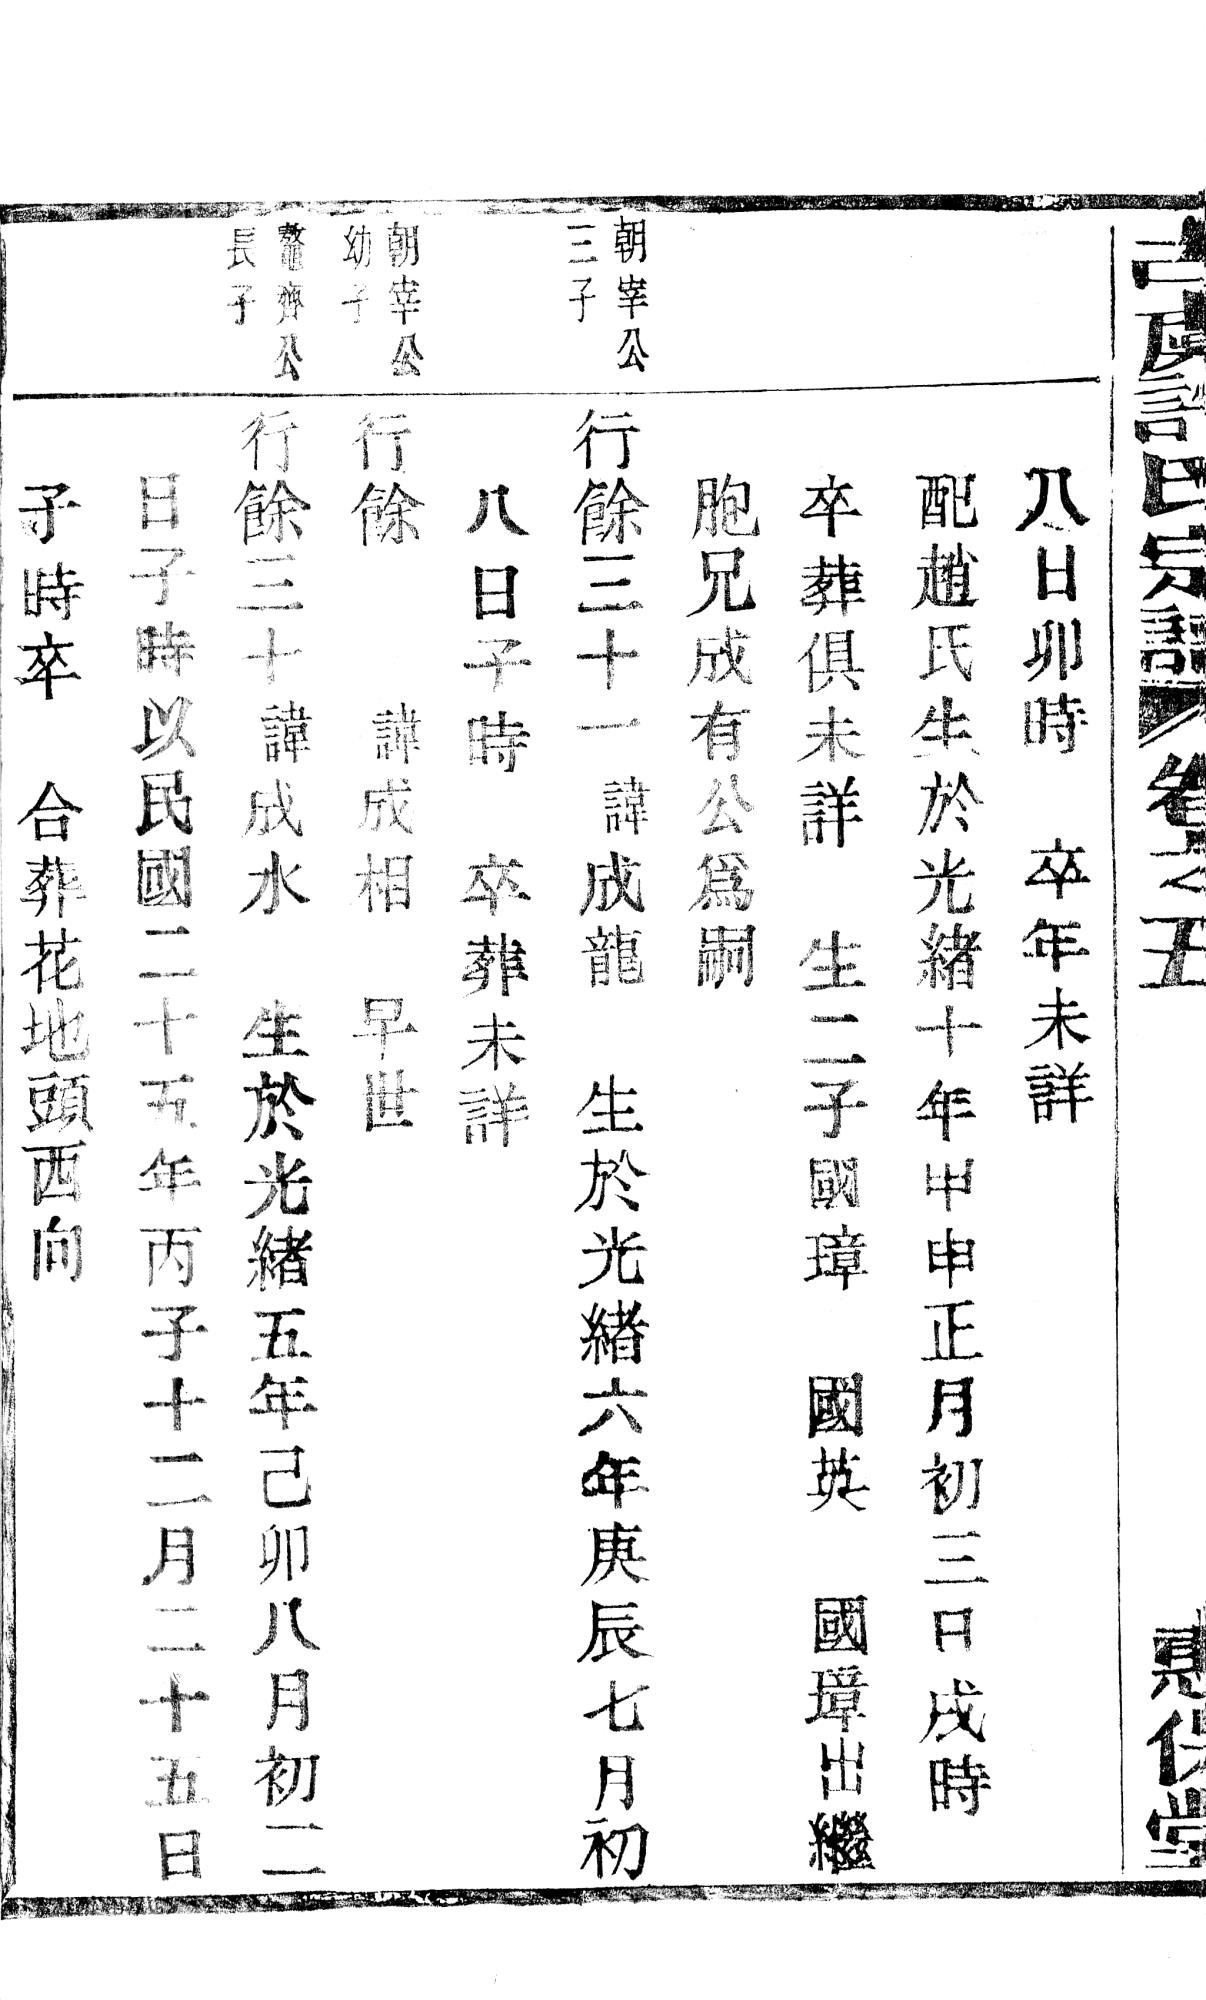 古虞許氏宗譜 卷之五
八日卯時 卒年未詳
配趙氏生於光緒十年甲申正月初三日戌時
卒葬俱未詳 生二子國璋 國英 國璋出繼
胞兄成有公爲嗣
朝宰公
三子
行餘三十一諱成龍 生於光緒六年庚辰七月初
八日子時 卒葬未詳
朝宰公
幼子
行餘 諱成相 早世
鼇齊公
長子
行餘三十諱成水 生於光緒五年己卯八月初二
日子時以民國二十五年丙子十二月二十五日
子時卒 合葬花地頭西向